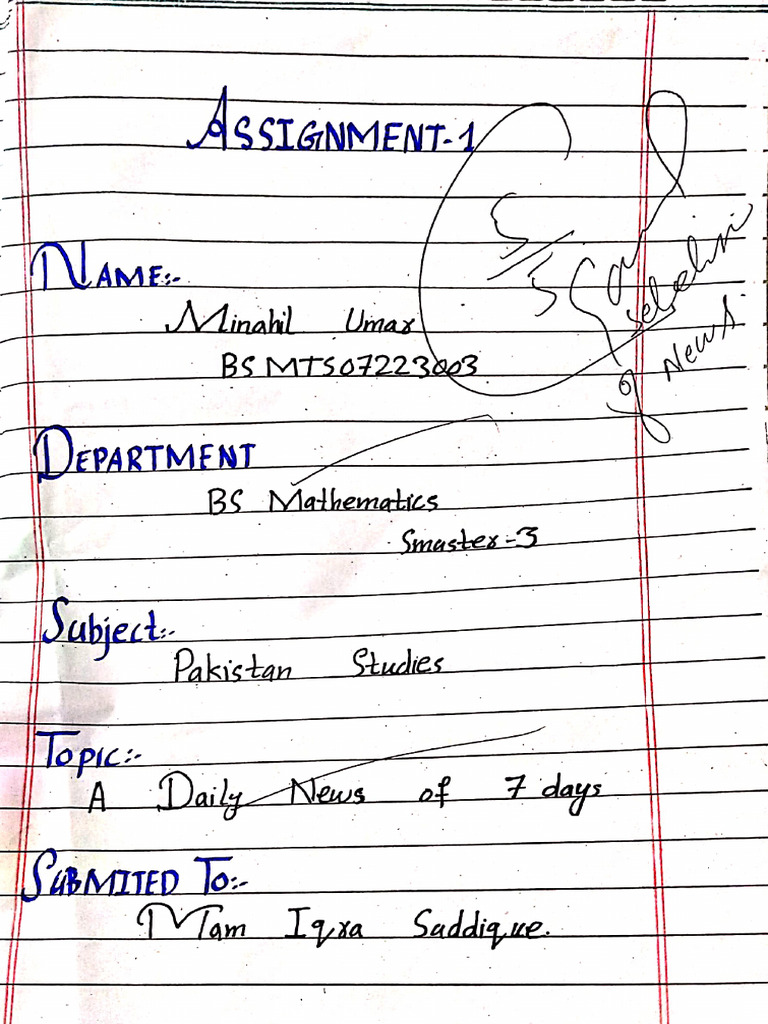 ASSIGNMENT-1
NAME:-
Minahil Umar
BSMTS07223003
DEPARTMENT
BS Mathematics
Smaster-3
Subject:-
Pakistan Studies
Topic:-
A Daily News of 7 days
SUBMITED To:-
Mam Iqra Saddique.
5/5
Good
of News